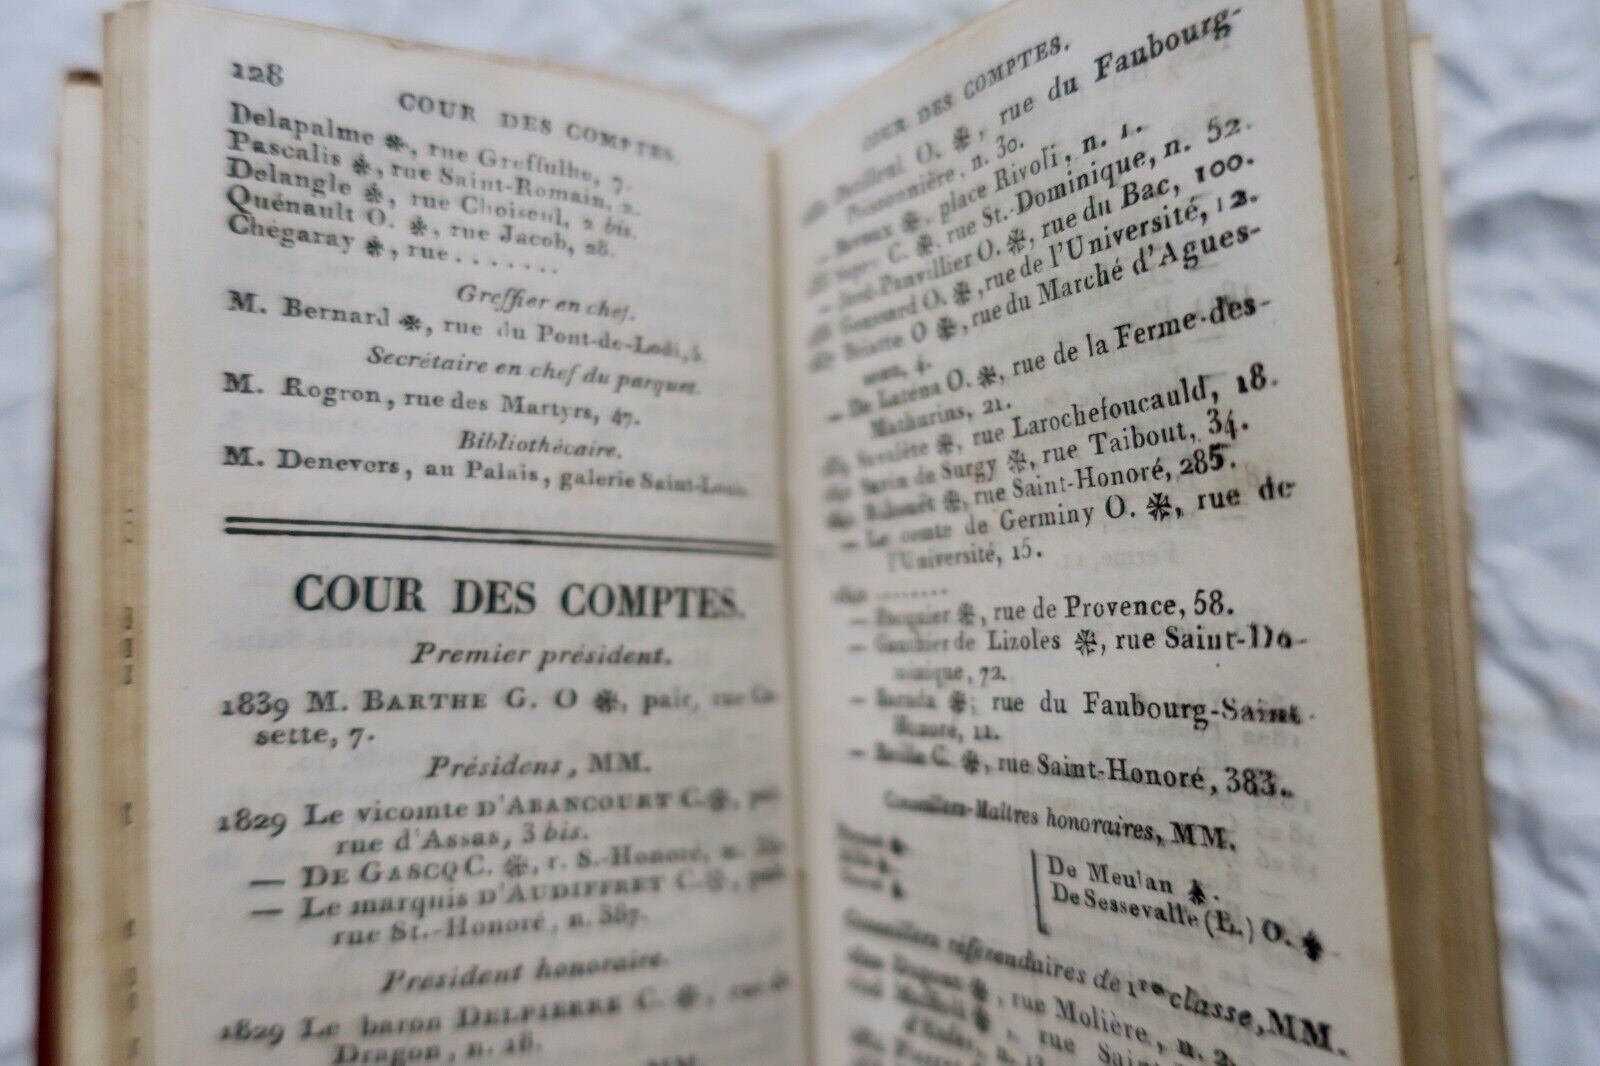 128
COUR DES COMPTES.
Delapalme ❋, rue Greffulhe, 7.
Pascalis ❋, rue Saint-Romain, 2.
Delangle ❋, rue Choiseul, 2 bis.
Quénault O. ❋, rue Jacob, 28.
Chégaray ❋, rue .......
Greffier en chef.
M. Bernard ❋, rue du Pont-de-Lodi, 5.
Secrétaire en chef du parquet.
M. Rogron, rue des Martyrs, 47.
Bibliothécaire.
M. Denevers, au Palais, galerie Saint-Louis.
COUR DES COMPTES.
Premier président.
1839 M. BARTHE G. O ❋, pair, rue Cas-
sette, 7.
Présidens, MM.
1829 Le vicomte D'ABANCOURT C. ❋,
rue d'Assas, 3 bis.
— DE GASCQ C. ❋, r. S.-Honoré, n.
— Le marquis D'AUDIFFRET C. ❋, pair,
rue St.-Honoré, n. 387.
Président honoraire.
1829 Le baron DELPIERRE C. ❋, rue du
Dragon, n. 18.
MM.
COUR DES COMPTES.
O. ❋, rue du Faubourg-
Poissonnière, n. 30.
❋, place Rivoli, n. 1.
C. ❋, rue St.-Dominique, n. 52.
-Panvillier O. ❋, rue du Bac, 100.
— Goussard O. ❋, rue de l'Université, 12.
Briatte O ❋, rue du Marché d'Agues-
seau, 4.
— De Laténa O. ❋, rue de la Ferme-des-
Mathurins, 21.
Savalète ❋, rue Larochefoucauld, 18.
de Surgy ❋, rue Taibout, 34.
❋, rue Saint-Honoré, 285.
— Le comte de Germiny O. ❋, rue de
l'Université, 15.
........
— Pasquier ❋, rue de Provence, 58.
— Gauthier de Lizoles ❋, rue Saint-Do-
minique, 72.
— Barada ❋, rue du Faubourg-Saint-
Honoré, 11.
— C. ❋, rue Saint-Honoré, 383.
Conseillers-Maîtres honoraires, MM.
De Meulan ❋.
De Sessevalle (E.) O. ❋
Conseillers référendaires de 1re classe, MM.
❋, rue Molière, n. 2
❋, rue
n. 13